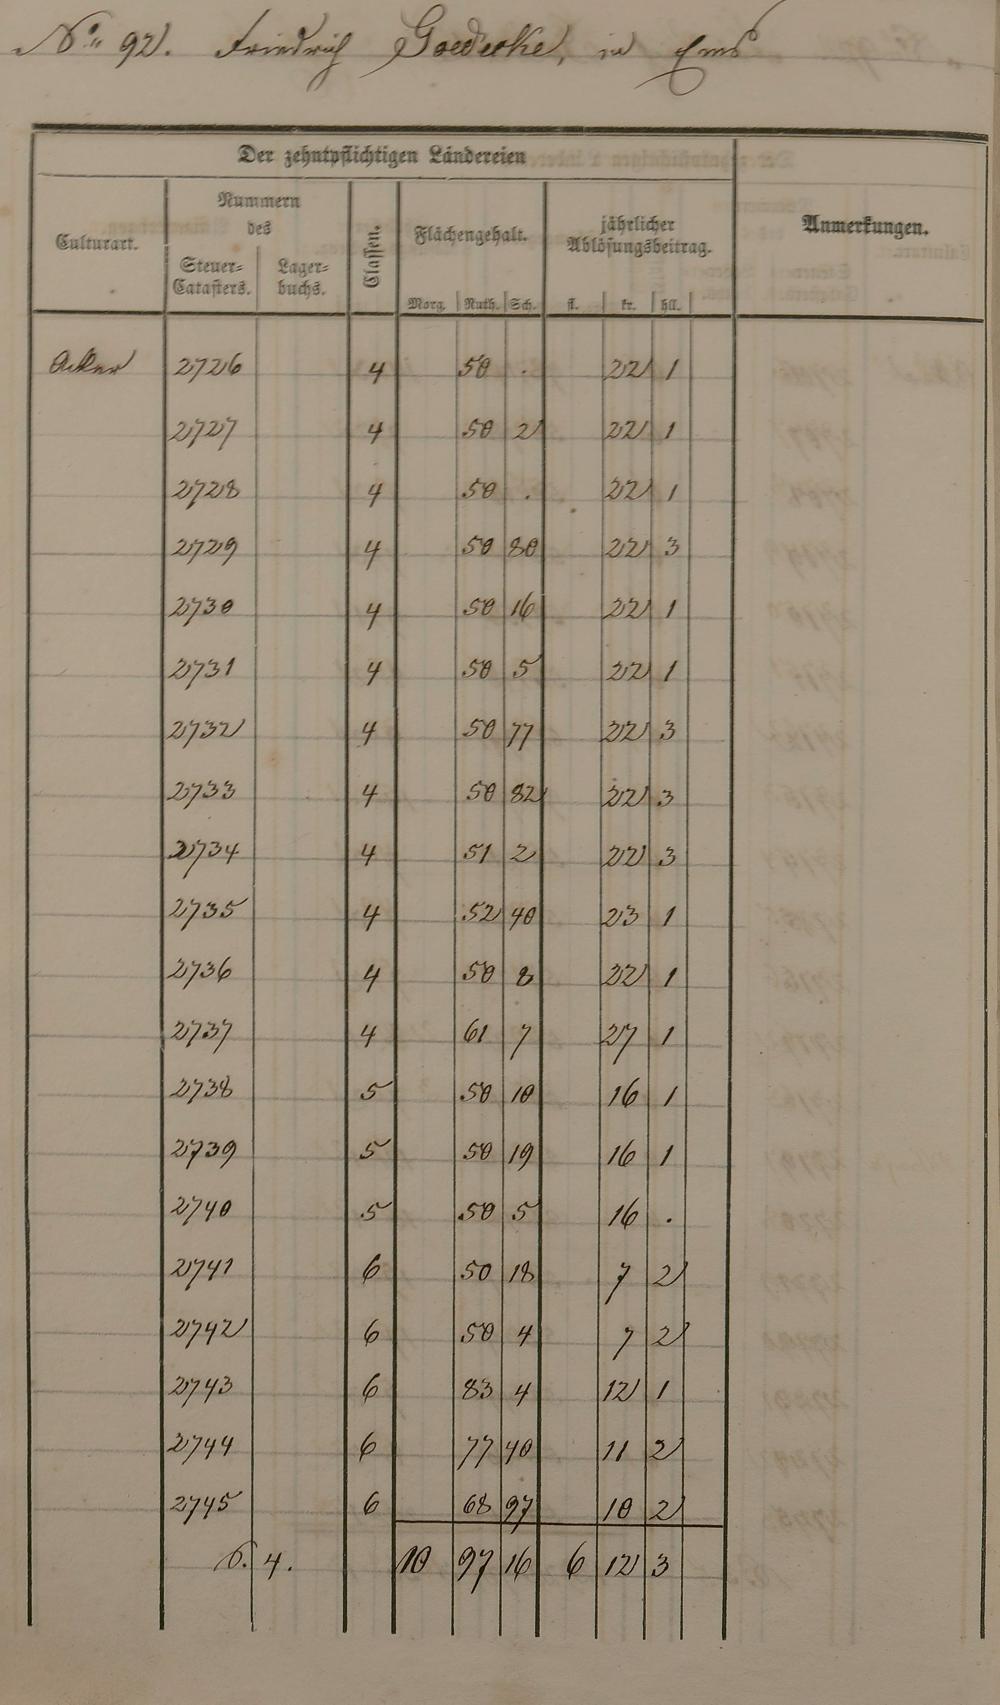 No 92. Friedrich Goedecke, in Ems
Der zehntpflichtigen Ländereien
Culturart.
Nummern
des
Steuer-
Catasters.
Lager-
buchs.
Classen.
Flächengehalt.
Morg. Ruth. Sch.
jährlicher
Ablösungsbeitrag.
fl. kr. hll.
Anmerkungen.
Acker 2726 4 50 . 22 1
2727 4 50 2 22 1
2728 4 50 . 22 1
2729 4 50 80 22 3
2730 4 50 16 22 1
2731 4 50 5 22 1
2732 4 50 77 22 3
2733 4 50 82 22 3
2734 4 51 2 22 3
2735 4 52 40 23 1
2736 4 50 8 22 1
2737 4 61 7 27 1
2738 5 50 10 16 1
2739 5 50 19 16 1
2740 5 50 5 16 .
2741 6 50 18 7 2
2742 6 50 4 7 2
2743 6 83 4 12 1
2744 6 77 40 11 2
2745 6 68 97 10 2
S. 4. 10 97 16 6 12 3